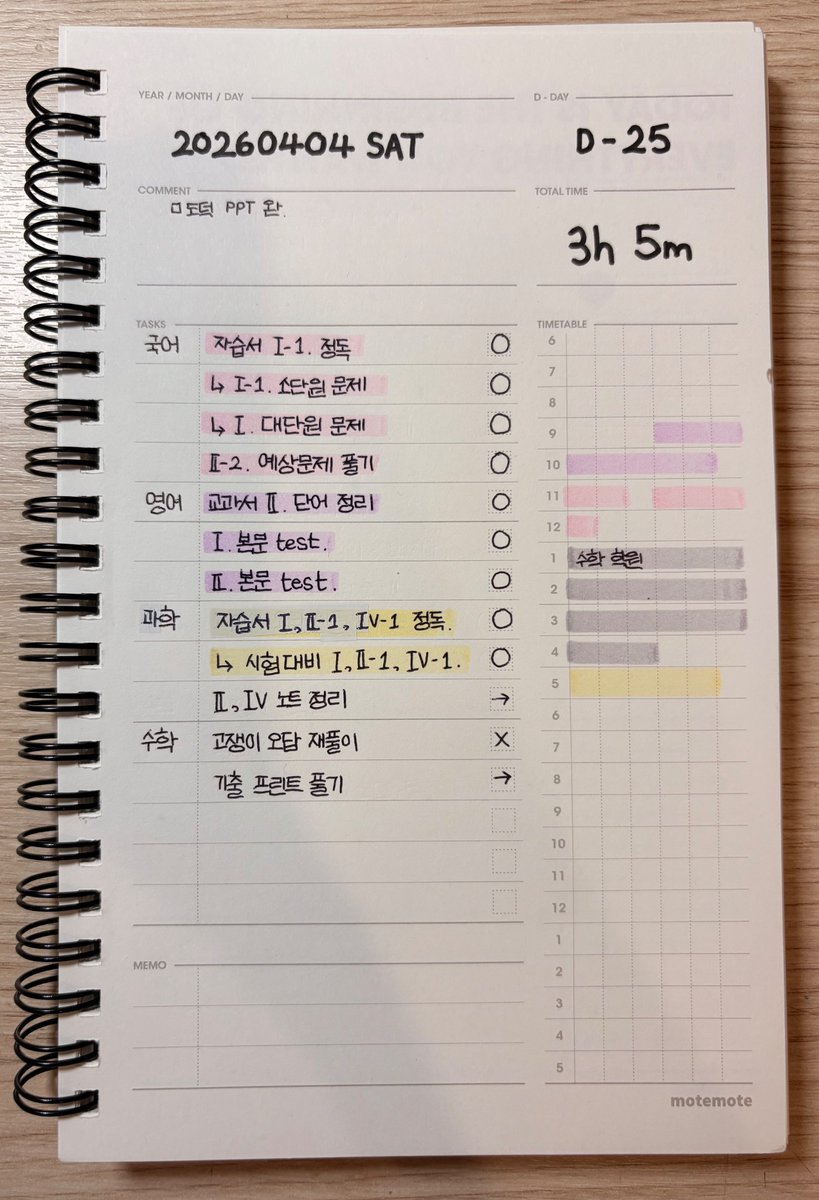 YEAR / MONTH / DAY
D - DAY
20260404 SAT
D-25
COMMENT
TOTAL TIME
□ 도덕 PPT 완.
3h 5m
TASKS
국어 자습서 I-1. 정독 O
↳ I-1. 소단원 문제 O
↳ I. 대단원 문제 O
II-2. 예상문제 풀기 O
영어 교과서 II. 단어 정리 O
I. 본문 test. O
II. 본문 test. O
과학 자습서 I, II-1, IV-1 정독. O
↳ 시험대비 I, II-1, IV-1. O
II, IV 노트 정리 →
수학 고쟁이 오답 재풀이 X
기출 프린트 풀기 →
MEMO
TIMETABLE
6
7
8
9
10
11
12
1 수학 학원
2
3
4
5
6
7
8
9
10
11
12
1
2
3
4
5
motemote